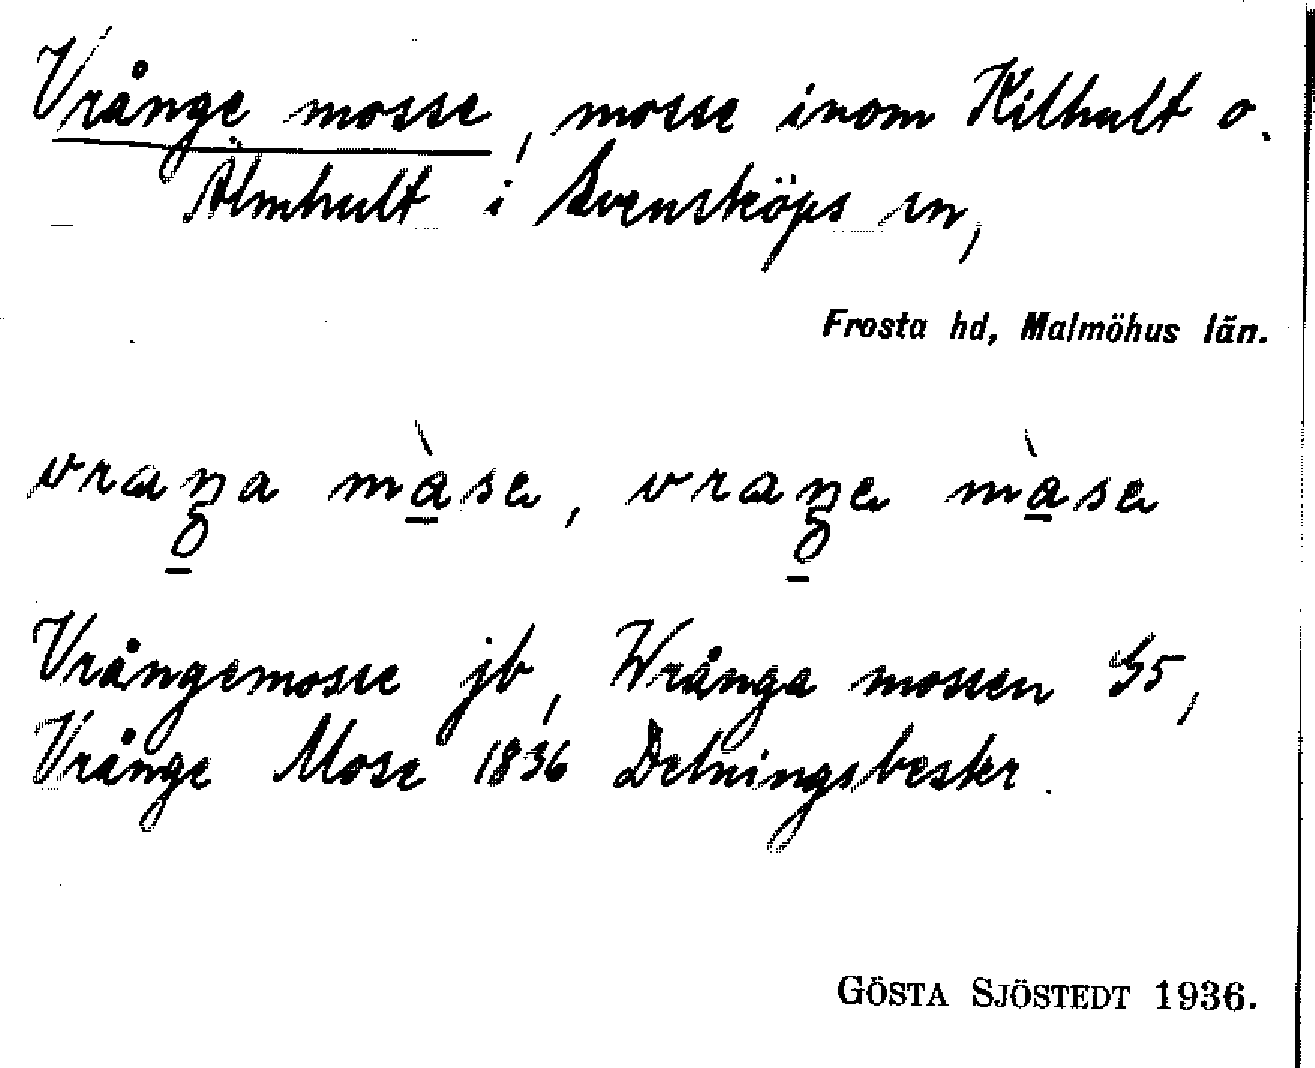 Vrånge mosse, mosse inom Kilhult o.
Älmhult i Svensköps sn,
Frosta hd, Malmöhus län.
vraŋa màse, vraŋe màse
Vrångemosse jb, Wrånga mossen G5,
Vrånge Mose 1836 Delningsbeskr.
GÖSTA SJÖSTEDT 1936.